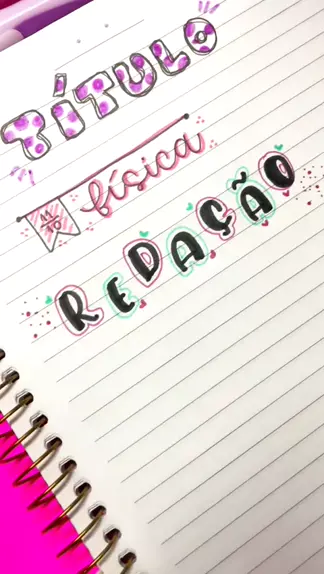 TÍTULO
física
REDAÇÃO